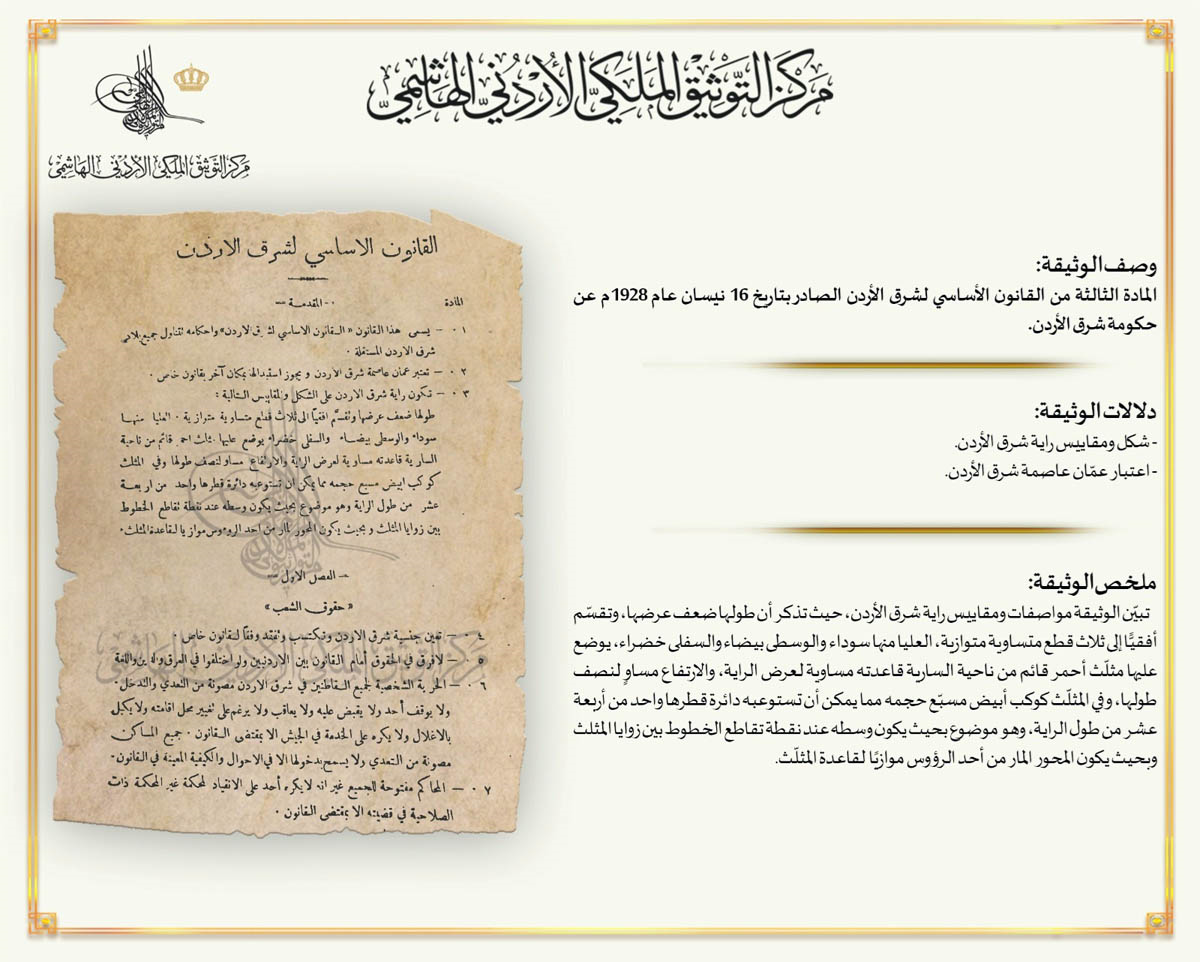 مركز التوثيق الملكي الأردني الهاشمي
مركز التوثيق الملكي الأردني الهاشمي
وصف الوثيقة:
المادة الثالثة من القانون الأساسي لشرق الأردن الصادر بتاريخ 16 نيسان عام 1928م عن
حكومة شرق الأردن.
دلالات الوثيقة:
- شكل ومقاييس راية شرق الأردن.
- اعتبار عمّان عاصمة شرق الأردن.
ملخص الوثيقة:
تبيّن الوثيقة مواصفات ومقاييس راية شرق الأردن، حيث تذكر أن طولها ضعف عرضها، وتقسّم
أفقيًّا إلى ثلاث قطع متساوية متوازية، العليا منها سوداء والوسطى بيضاء والسفلى خضراء، يوضع
عليها مثلّث أحمر قائم من ناحية السارية قاعدته مساوية لعرض الراية، والارتفاع مساوٍ لنصف
طولها، وفي المثلّث كوكب أبيض مسبّع حجمه مما يمكن أن تستوعبه دائرة قطرها واحد من أربعة
عشر من طول الراية، وهو موضوع بحيث يكون وسطه عند نقطة تقاطع الخطوط بين زوايا المثلث
وبحيث يكون المحور المار من أحد الرؤوس موازيًا لقاعدة المثلّث.
القانون الاساسي لشرق الاردن
المادة - المقدمة -
٠١ — يسمى هذا القانون « القانون الاساسي لشرق الاردن» واحكامه تتناول جميع بلاد
شرق الاردن المستقلة ٠
٠٢ — تعتبر عمان عاصمة شرق الاردن و يجوز استبدالها بمكان آخر بقانون خاص ٠
٠٣ — تكون راية شرق الاردن على الشكل والمقاييس التالية :
طولها ضعف عرضها وتقسم افقيًا الى ثلاث قطع متساوية متوازية ٠ العليا منها
سوداء والوسطى بيضاء والسفلى خضراء يوضع عليها مثلث احمر قائم من ناحية
السارية قاعدته مساوية لعرض الراية والارتفاع مساو لنصف طولها وفي المثلث
كوكب ابيض مسبع حجمه مما يمكن ان تستوعبه دائرة قطرها واحد من اربعة
عشر من طول الراية وهو موضوع بحيث يكون وسطه عند نقطة تقاطع الخطوط
بين زوايا المثلث و بحيث يكون المحور المار من احد الروءوس موازيا لقاعدة المثلث٠
— الفصل الاول —
« حقوق الشعب »
٠٤ — تعين جنسية شرق الاردن وتكتسب وتفقد وفقًا لقانون خاص ٠
٠٥ — لافرق في الحقوق أمام القانون بين الاردنيين ولو اختلفوا في العرق والدين واللغة
٠٦ — الحرية الشخصية لجميع القاطنين في شرق الاردن مصونة من التعدي والتدخل٠
ولا يوقف أحد ولا يقبض عليه ولا يعاقب ولا يرغم على تغيير محل اقامته ولا يكبل
بالاغلال ولا يكره على الخدمة في الجيش الا بمقتضى القانون ٠ جميع المساكن
مصونة من التعدي ولا يسمح بدخولها الا في الاحوال والكيفية المعينة في القانون٠
٠٧ — المحاكم مفتوحة للجميع غير انه لايكره أحد على الانقياد لمحكمة غير المحكمة ذات
الصلاحية في قضيته الا بمقتضى القانون ٠